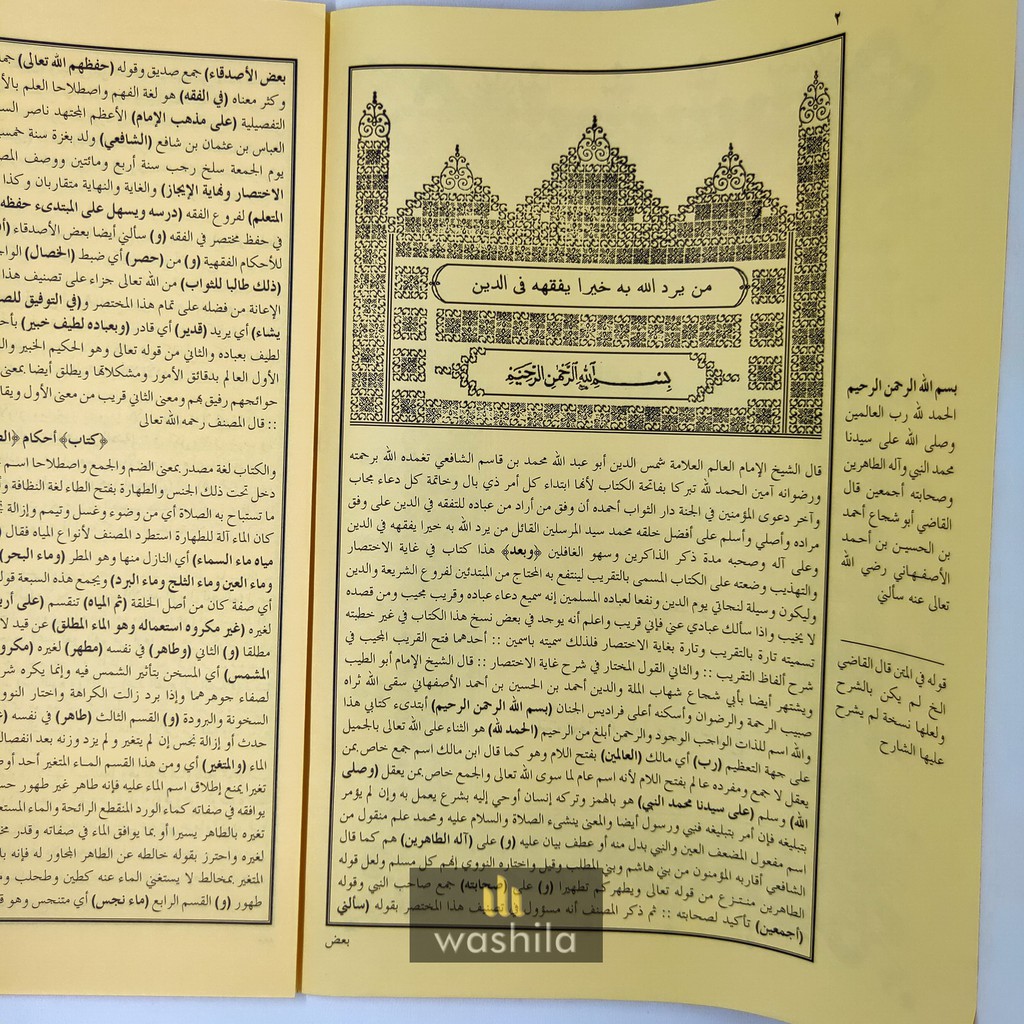 ٢
من يرد الله به خيرا يفقهه فى الدين
بسم الله الرحمن الرحيم
قال الشيخ الإمام العالم العلامة شمس الدين أبو عبد الله محمد بن قاسم الشافعي تغمده الله برحمته
ورضوانه آمين الحمد لله تبركا بفاتحة الكتاب لأنها ابتداء كل أمر ذي بال وخاتمة كل دعاء مجاب
وآخر دعوى المؤمنين في الجنة دار الثواب أحمده أن وفق من أراد من عباده للتفقه في الدين على وفق
مراده وأصلي وأسلم على أفضل خلقه محمد سيد المرسلين القائل من يرد الله به خيرا يفقهه في الدين
وعلى آله وصحبه مدة ذكر الذاكرين وسهو الغافلين ﴿وبعد﴾ هذا كتاب في غاية الاختصار
والتهذيب وضعته على الكتاب المسمى بالتقريب لينتفع به المحتاج من المبتدئين لفروع الشريعة والدين
وليكون وسيلة لنجاتي يوم الدين ونفعا لعباده المسلمين إنه سميع دعاء عباده وقريب مجيب ومن قصده
لا يخيب وإذا سألك عبادي عني فإني قريب واعلم أنه يوجد في بعض نسخ هذا الكتاب في غير خطبته
تسميته تارة بالتقريب وتارة بغاية الاختصار فلذلك سميته باسمين :: أحدهما فتح القريب المجيب في
شرح ألفاظ التقريب :: والثاني القول المختار في شرح غاية الاختصار :: قال الشيخ الإمام أبو الطيب
ويشتهر أيضا بأبي شجاع شهاب الملة والدين أحمد بن الحسين بن أحمد الأصفهاني سقى الله ثراه
صبيب الرحمة والرضوان وأسكنه أعلى فراديس الجنان (بسم الله الرحمن الرحيم) أبتدىء كتابي هذا
والله اسم للذات الواجب الوجود والرحمن أبلغ من الرحيم (الحمد لله) هو الثناء على الله تعالى بالجميل
على جهة التعظيم (رب) أي مالك (العالمين) بفتح اللام وهو كما قال ابن مالك اسم جمع خاص بمن
يعقل لا جمع ومفرده عالم بفتح اللام لأنه اسم عام لما سوى الله تعالى والجمع خاص بمن يعقل (وصلى
الله) وسلم (على سيدنا محمد النبي) هو بالهمز وتركه إنسان أوحي إليه بشرع يعمل به وإن لم يؤمر
بتبليغه فإن أمر بتبليغه فنبي ورسول أيضا والمعنى ينشىء الصلاة والسلام عليه ومحمد علم منقول من
اسم مفعول المضعف العين والنبي بدل منه أو عطف بيان عليه (و) على (آله الطاهرين) هم كما قال
الشافعي أقاربه المؤمنون من بني هاشم وبني المطلب وقيل واختاره النووي إنهم كل مسلم ولعل قوله
الطاهرين منتزع من قوله تعالى ويطهركم تطهيرا (و) على (صحابته) جمع صاحب النبي وقوله
(أجمعين) تأكيد لصحابته :: ثم ذكر المصنف أنه مسؤول في تصنيف هذا المختصر بقوله (سألني
بعض
بسم الله الرحمن الرحيم
الحمد لله رب العالمين
وصلى الله على سيدنا
محمد النبي وآله الطاهرين
وصحابته أجمعين قال
القاضي أبو شجاع أحمد
بن الحسين بن أحمد
الأصفهاني رضي الله
تعالى عنه سألني
قوله في المتن قال القاضي
الخ لم يكن بالشرح
ولعلها نسخة لم يشرح
عليها الشارح
بعض الأصدقاء) جمع صديق وقوله (حفظهم الله تعالى)
وكثر معناه (في الفقه) هو لغة الفهم واصطلاحا العلم
التفصيلية (على مذهب الإمام) الأعظم المجتهد ناصر
العباس بن عثمان بن شافع (الشافعي) ولد بغزة سنة
يوم الجمعة سلخ رجب سنة أربع ومائتين ووصف
الاختصار ونهاية الإيجاز) والغاية والنهاية متقاربان وكذا
المتعلم) لفروع الفقه (درسه ويسهل على المبتدىء حفظه
في حفظ مختصر في الفقه (و) سألني أيضا بعض الأصدقاء
للأحكام الفقهية (و) من (حصر) أي ضبط (الخصال)
(ذلك طالبا للثواب) من الله تعالى جزاء على تصنيف هذا
الإعانة من فضله على تمام هذا المختصر و(في التوفيق
يشاء) أي يريد (قدير) أي قادر (وبعباده لطيف خبير)
لطيف بعباده والثاني من قوله تعالى وهو الحكيم الخبير
الأول العالم بدقائق الأمور ومشكلاتها ويطلق أيضا بمعنى
حوائجهم رفيق بهم ومعنى الثاني قريب من معنى الأول
:: قال المصنف رحمه الله تعالى
﴿كتاب﴾ أحكام
والكتاب لغة مصدر بمعنى الضم والجمع واصطلاحا اسم
دخل تحت ذلك الجنس والطهارة بفتح الطاء لغة النظافة
ما تستباح به الصلاة أي من وضوء وغسل وتيمم وإزالة
كان الماء آلة للطهارة استطرد المصنف لأنواع المياه فقال
مياه ماء السماء) أي النازل منها وهو المطر (وماء البحر)
وماء العين وماء الثلج وماء البرد) ويجمع هذه السبعة
أي صفة كان من أصل الخلقة (ثم المياه) تنقسم (على
لغيره (غير مكروه استعماله وهو الماء المطلق) عن قيد
مطلقا (و) الثاني (وطاهر) في نفسه (مطهر) لغيره
المشمس) أي المسخن بتأثير الشمس فيه وإنما يكره
لصفاء جوهرهما وإذا برد زالت الكراهة واختار
السخونة والبرودة (و) القسم الثالث (طاهر) في نفسه
حدث أو إزالة نجس إن لم يتغير ولم يزد وزنه بعد
الماء (والمتغير) أي ومن هذا القسم الماء المتغير أحد
تغيرا يمنع إطلاق اسم الماء عليه فإنه طاهر غير طهور
يوافقه في صفاته كماء الورد المنقطع الرائحة والماء
تغيره بالطاهر يسيرا أو بما يوافق الماء في صفاته وقدر
لغيره واحترز بقوله خالطه عن الطاهر المجاور له فإنه
المتغير بمخالط لا يستغني الماء عنه كطين وطحلب
طهور (و) القسم الرابع (ماء نجس) أي متنجس وهو
washila